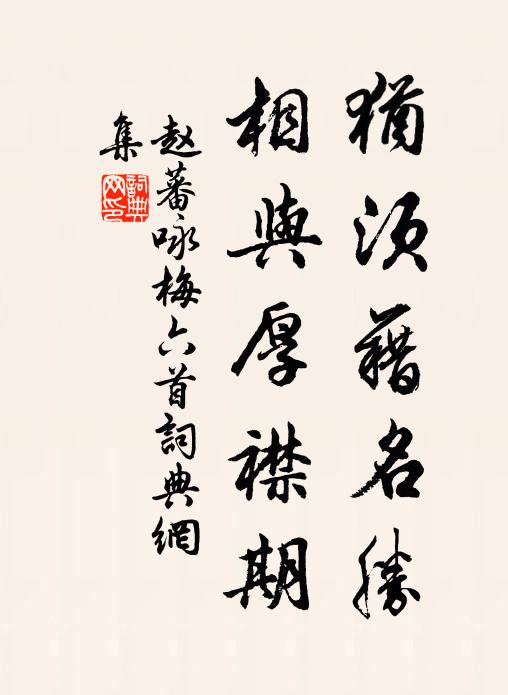 猶須藉名勝
相與厚襟期
赵蕃咏梅六首詞典網
集
詞典網印